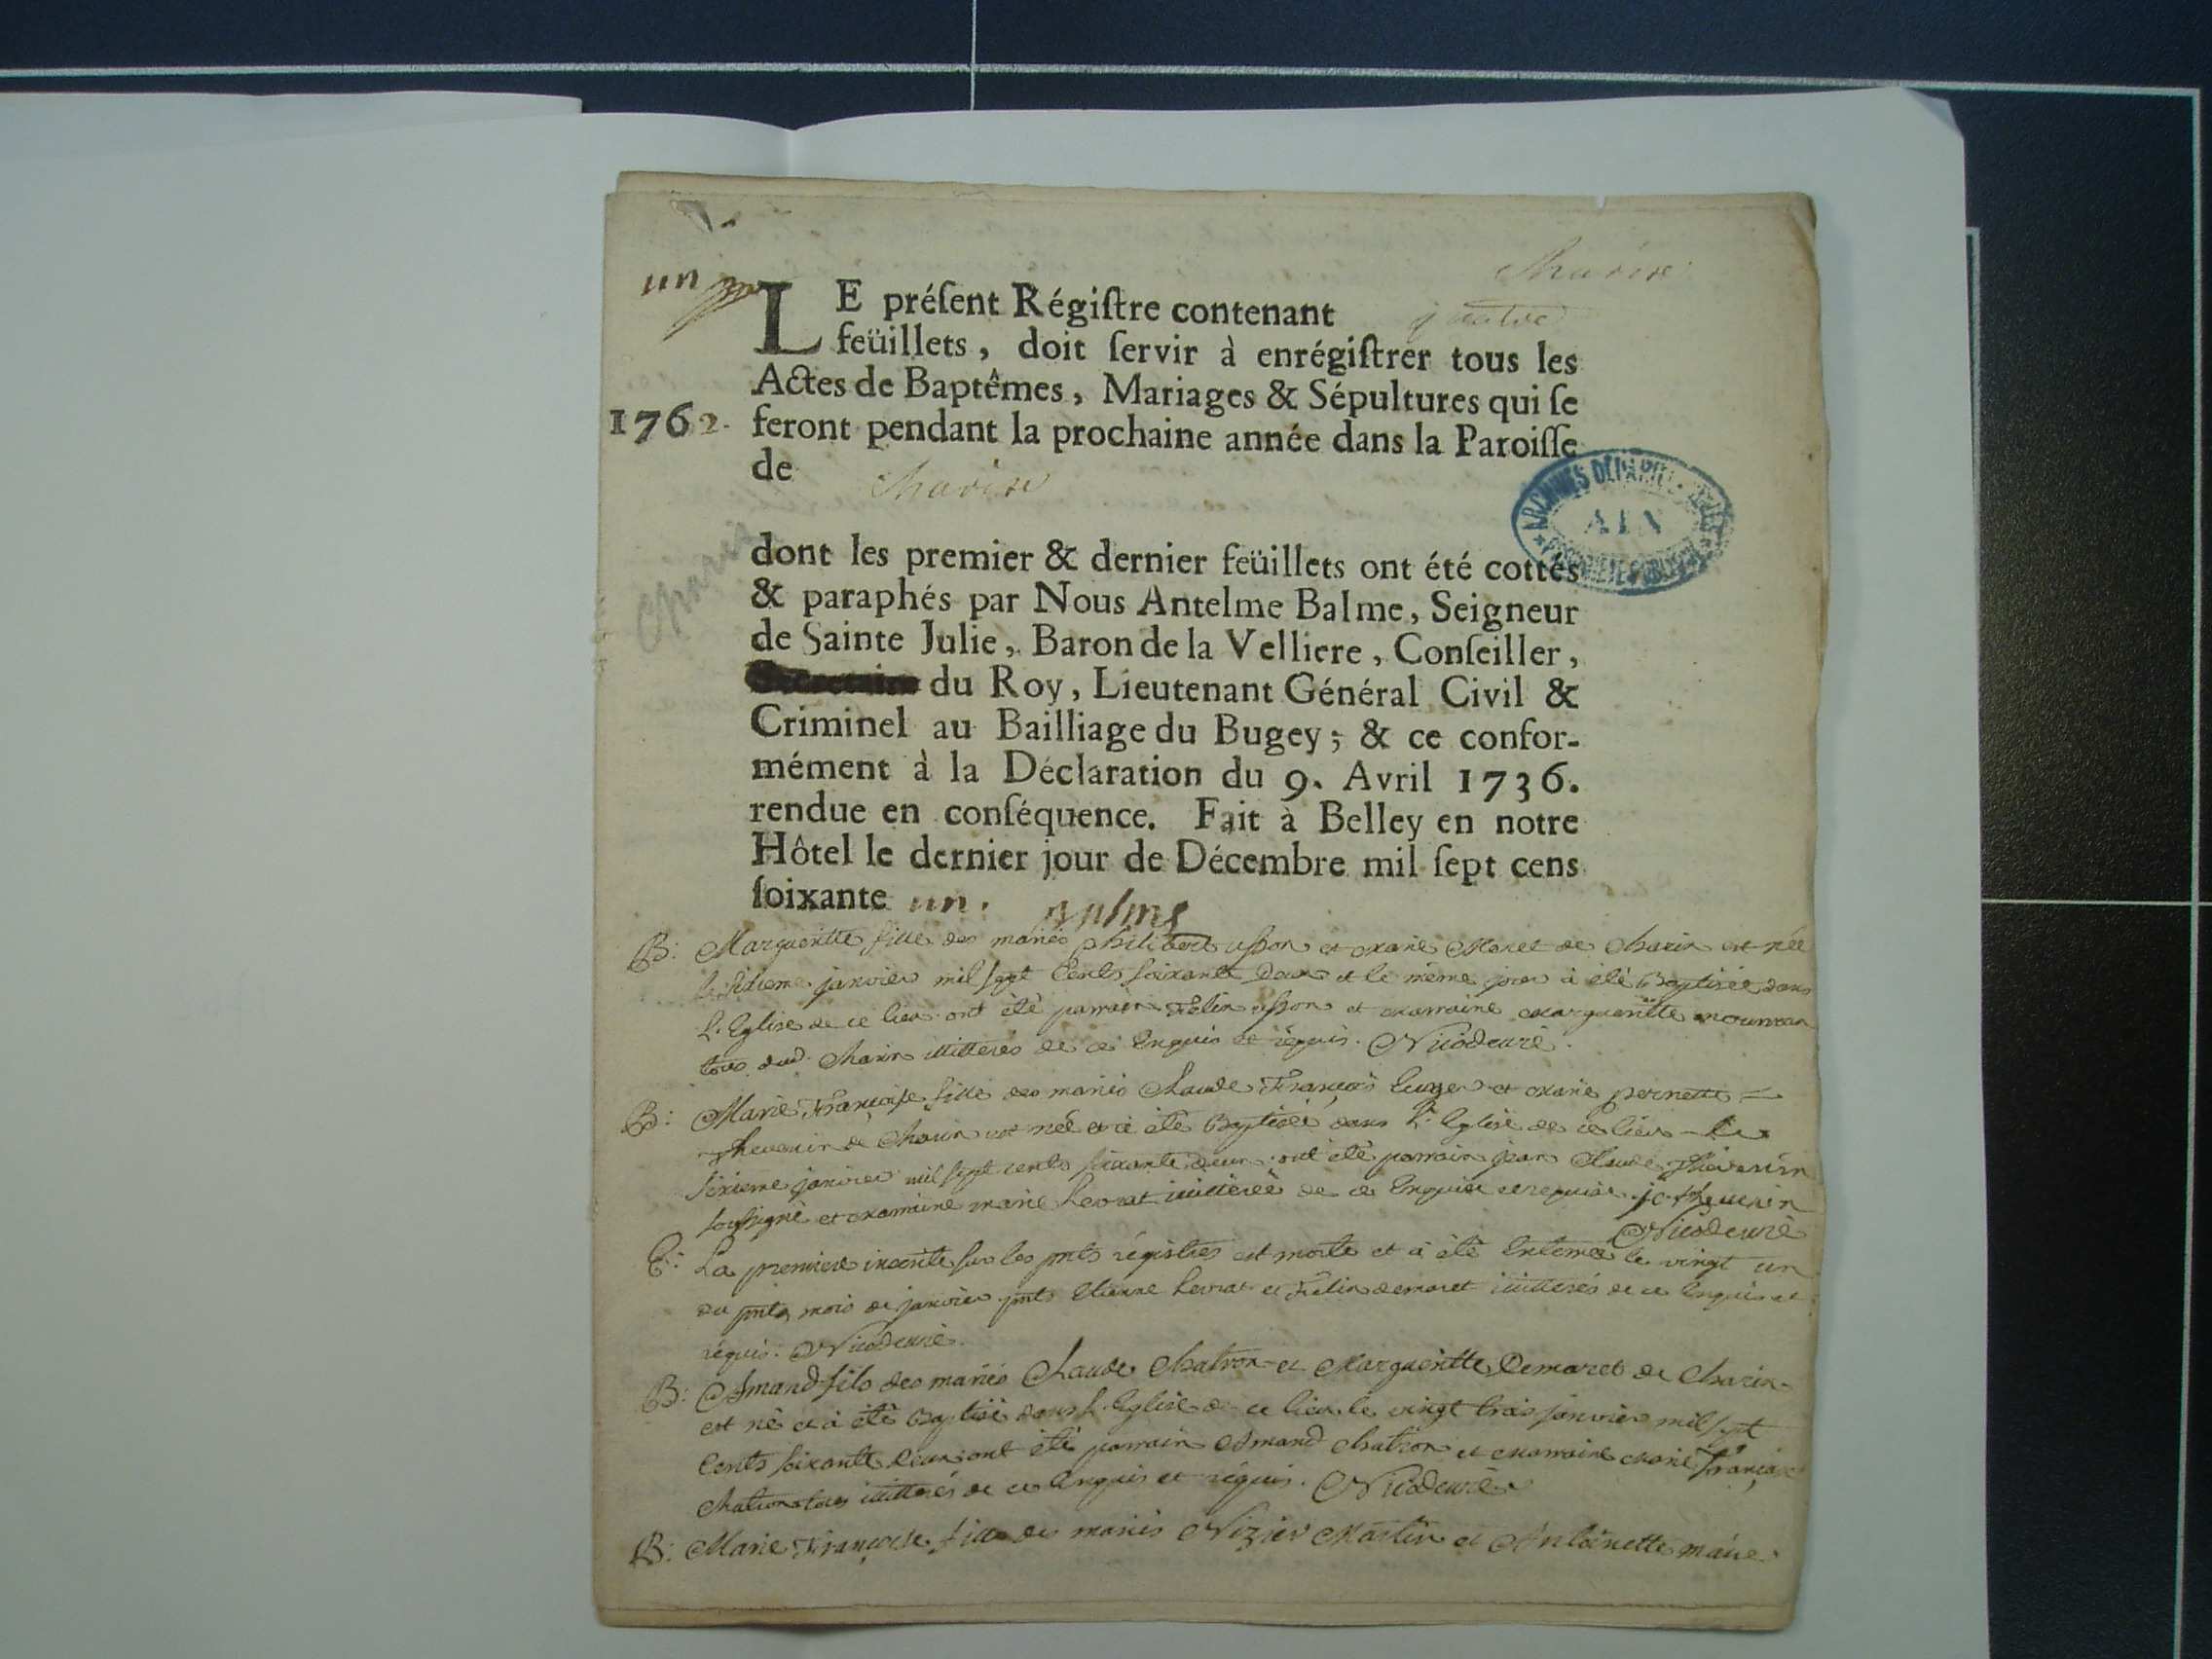 un
Charix
LE préſent Régiſtre contenant quatre
feüillets, doit ſervir à enrégiſtrer tous les
Actes de Baptêmes, Mariages & Sépultures qui ſe
1762. feront pendant la prochaine année dans la Paroiſſe
de Charix
ARCHIVES DÉPARTEMENTALES
AIN
Charix
dont les premier & dernier feüillets ont été cottés
& paraphés par Nous Antelme Balme, Seigneur
de Sainte Julie, Baron de la Velliere, Conſeiller,
du Roy, Lieutenant Général Civil &
Criminel au Bailliage du Bugey; & ce confor-
mément à la Déclaration du 9. Avril 1736.
rendue en conſéquence. Fait à Belley en notre
Hôtel le dernier jour de Décembre mil ſept cens
ſoixante un. Balme
B: Margueritte fille des mariés Philibert et Marie de Charix est née
janvier mil sept Cents soixante Deux et le même jour à été Baptisée dans
L'Eglise de ce lieu ont été parrain et marraine Margueritte
tous dud. Charix illitterés de ce Enquis et réquis. Nicod curé.
B: Marie Françoise fille des mariés Claude François et Marie pernette
Thevenin de Charix est née et à été Baptisée dans L'Eglise de ce lieu le
sixieme janvier mil sept cents soixante deux ont été parrain jean Claude Thevenin
soussigné et marraine marie Levrat illitterée de ce Enquise et requise. j c thevenin
Nicod curé
E: La premiere inscrite sur les pnts régistres est morte et à été Enterrée le vingt un
du pnt mois de janvier pnts Etienne Levrat et demaret illitterés de ce Enquis et
réquis. Nicod curé.
B: Amand fils des mariés Claude Chatron et Margueritte Demaret de Charix
est né et à été Baptisé dans L'Eglise de ce lieu le vingt trois janvier mil sept
Cents soixante Deux ont été parrain Amand Chatron et marraine marie Françoise
Chatron tous illitterés de ce Enquis et réquis. Nicod curé
B: Marie Françoise fille des mariés Nizier Martin et Antoinette